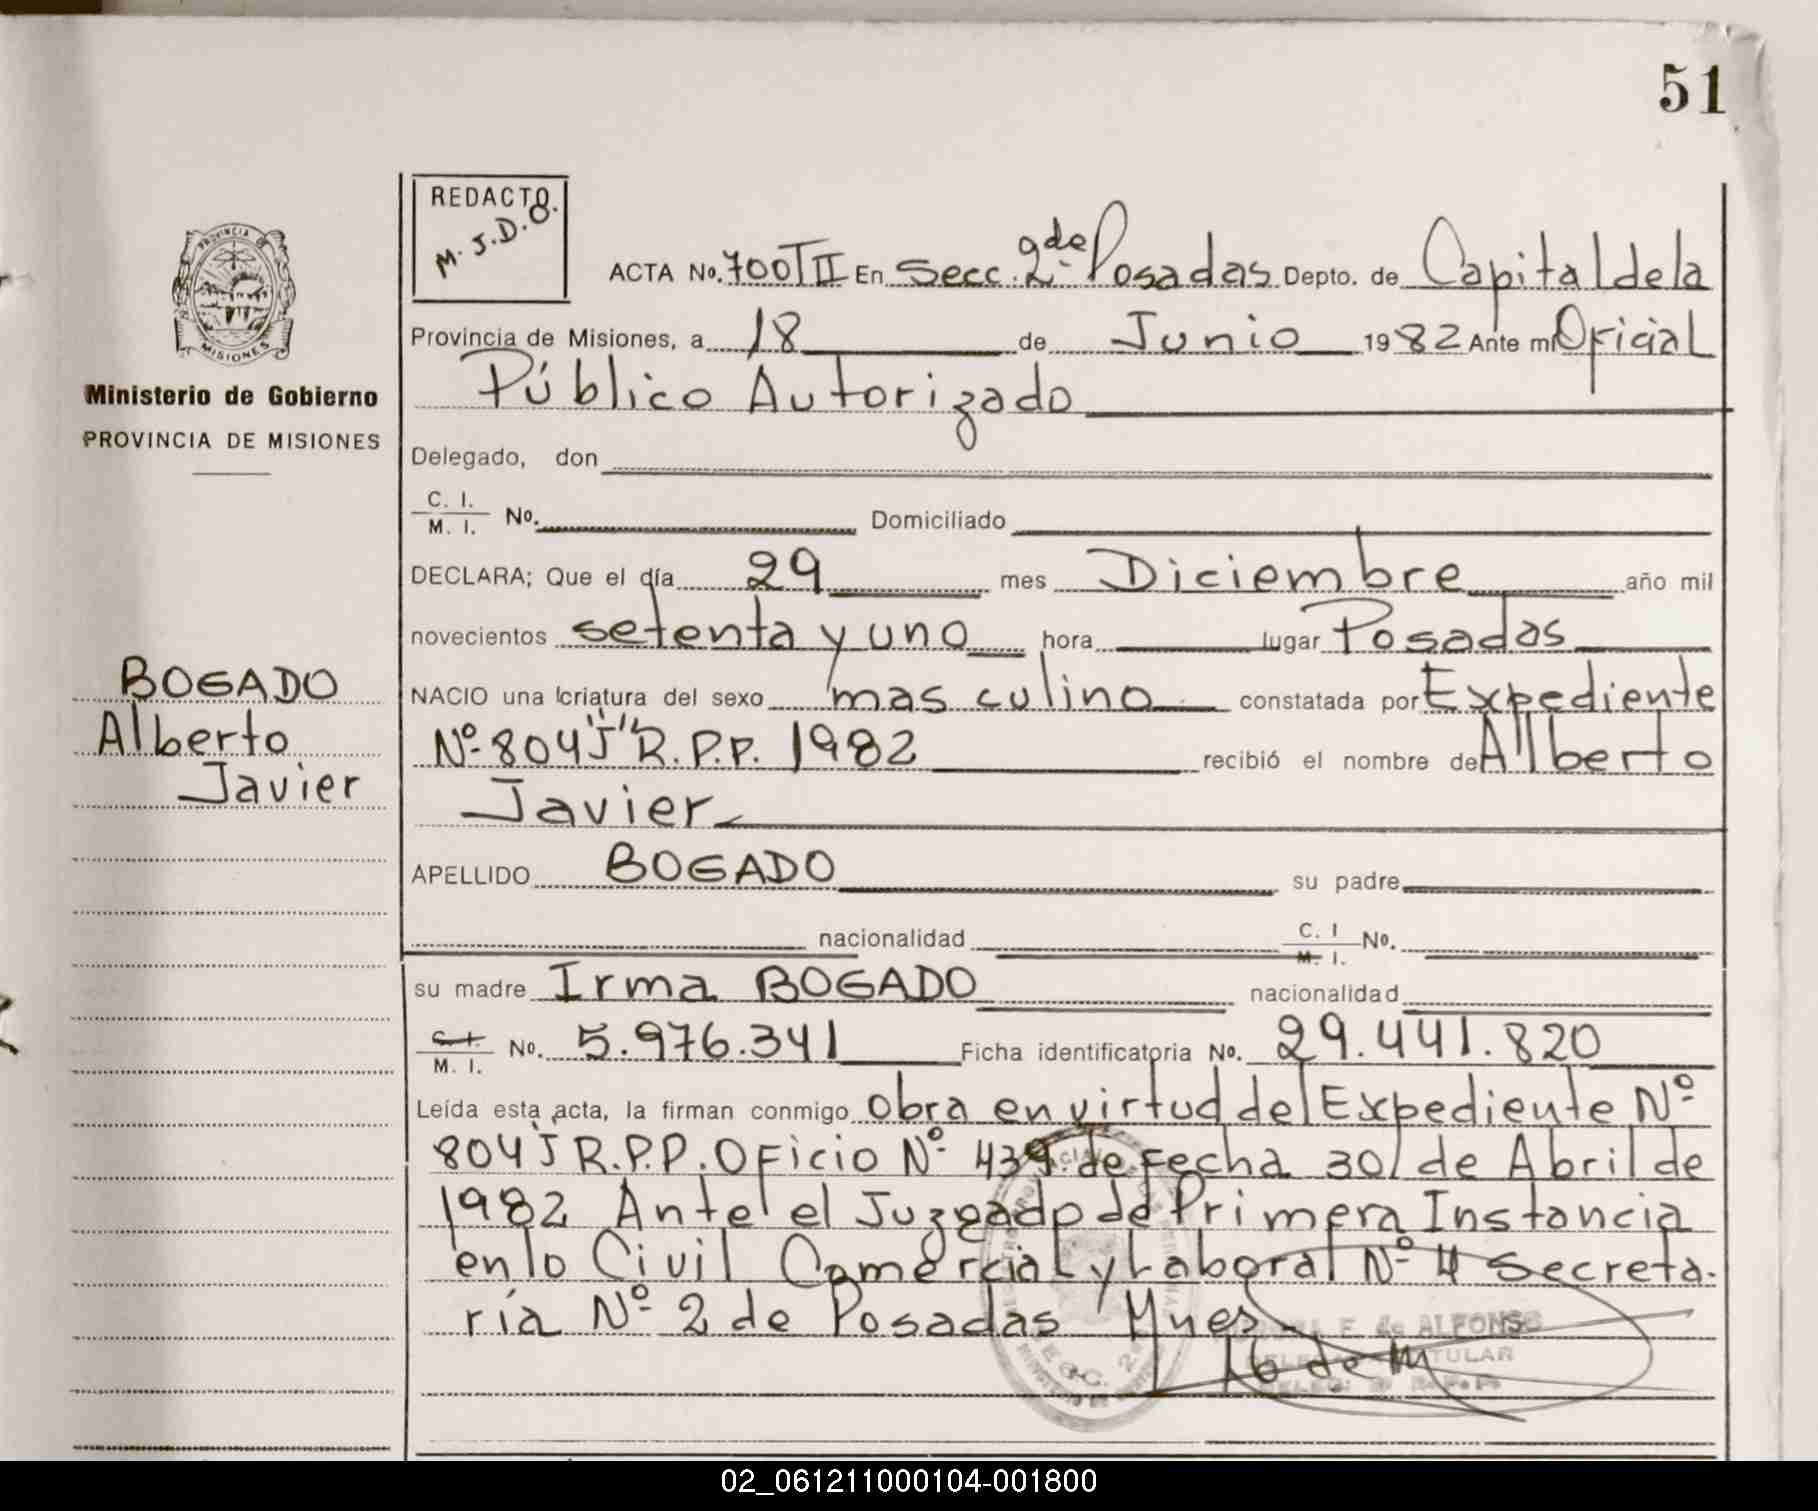 51
REDACTO
M.J.D.O.
PROVINCIA DE
MISIONES
ACTA No. 700 T II En Secc. 2da de Posadas Depto. de Capital de la
Provincia de Misiones, a 18 de Junio 1982 Ante mi Oficial
Público Autorizado
Ministerio de Gobierno
PROVINCIA DE MISIONES
Delegado, don
C. I.
M. I. No. Domiciliado
DECLARA; Que el día 29 mes Diciembre año mil
novecientos setenta y uno hora lugar Posadas
NACIO una criatura del sexo masculino constatada por Expediente
Nº 804 "J" R.P.P. 1982 recibió el nombre de Alberto
Javier
BOGADO
Alberto
Javier
APELLIDO BOGADO su padre
nacionalidad C. I
M. I. No.
su madre Irma BOGADO nacionalidad
C. I.
M. I. No. 5.976.341 Ficha identificatoria No. 29.441.820
Leída esta acta, la firman conmigo obra en virtud del Expediente Nº
804 "J" R.P.P. Oficio Nº 439 de Fecha 30 de Abril de
1982 Ante el Juzgado de Primera Instancia
en lo Civil Comercial y Laboral Nº 4 Secreta-
ría Nº 2 de Posadas
F. de ALFONSO
TITULAR
02_061211000104-001800